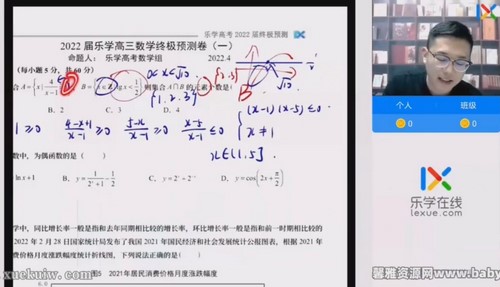 乐学高考 2022 届终极预测
2022 届乐学高三数学终极预测卷（一）
命题人： 乐学高考数学组 2022.4
(每小题 5 分，共 60 分)
0<x<√10
{2,3}
合 A={x| 4/x-1 B={x∈Z| lgx< 1/2} 则集合 A∩B 的元素个数为( )
√10
B. 2 C. 3 D. 4
{1,2,3}
B
1≥0 4-x+1/x-1 ≥0 5-x/x-1 ≥0 x-5/x-1 ≤0
(x-1)(x-5)≤0
x≠1
x∈(1,5].
数中，为偶函数的是（ ）
lnx+1 B. y= 1/2ˣ+1 - 1/2 C. y=2ˣ+2⁻ˣ D. y=cos(2x+ π/2)
学中，同比增长率一般是指和去年同期相比较的增长率，环比增长率一般是指和前一时期相比较的
2022 年 2 月 28 日国家统计局发布了我国 2021 年国民经济和社会发展统计公报图表，根据 2021 年
费价格月度涨跌幅度统计折线图，下列说法正确的是( )
图5 2021年居民消费价格月度涨跌幅度
个人 班级
0 0
乐学在线
lexue.com
xuekuiw.com
馨雅资源网www.baby